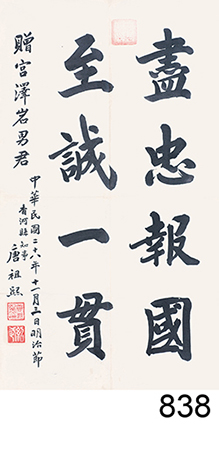 盡忠報國
至誠一貫
贈宮澤岩男君
中華民國二十八年十一月三日明治節
香河縣知事
唐祖熙
838